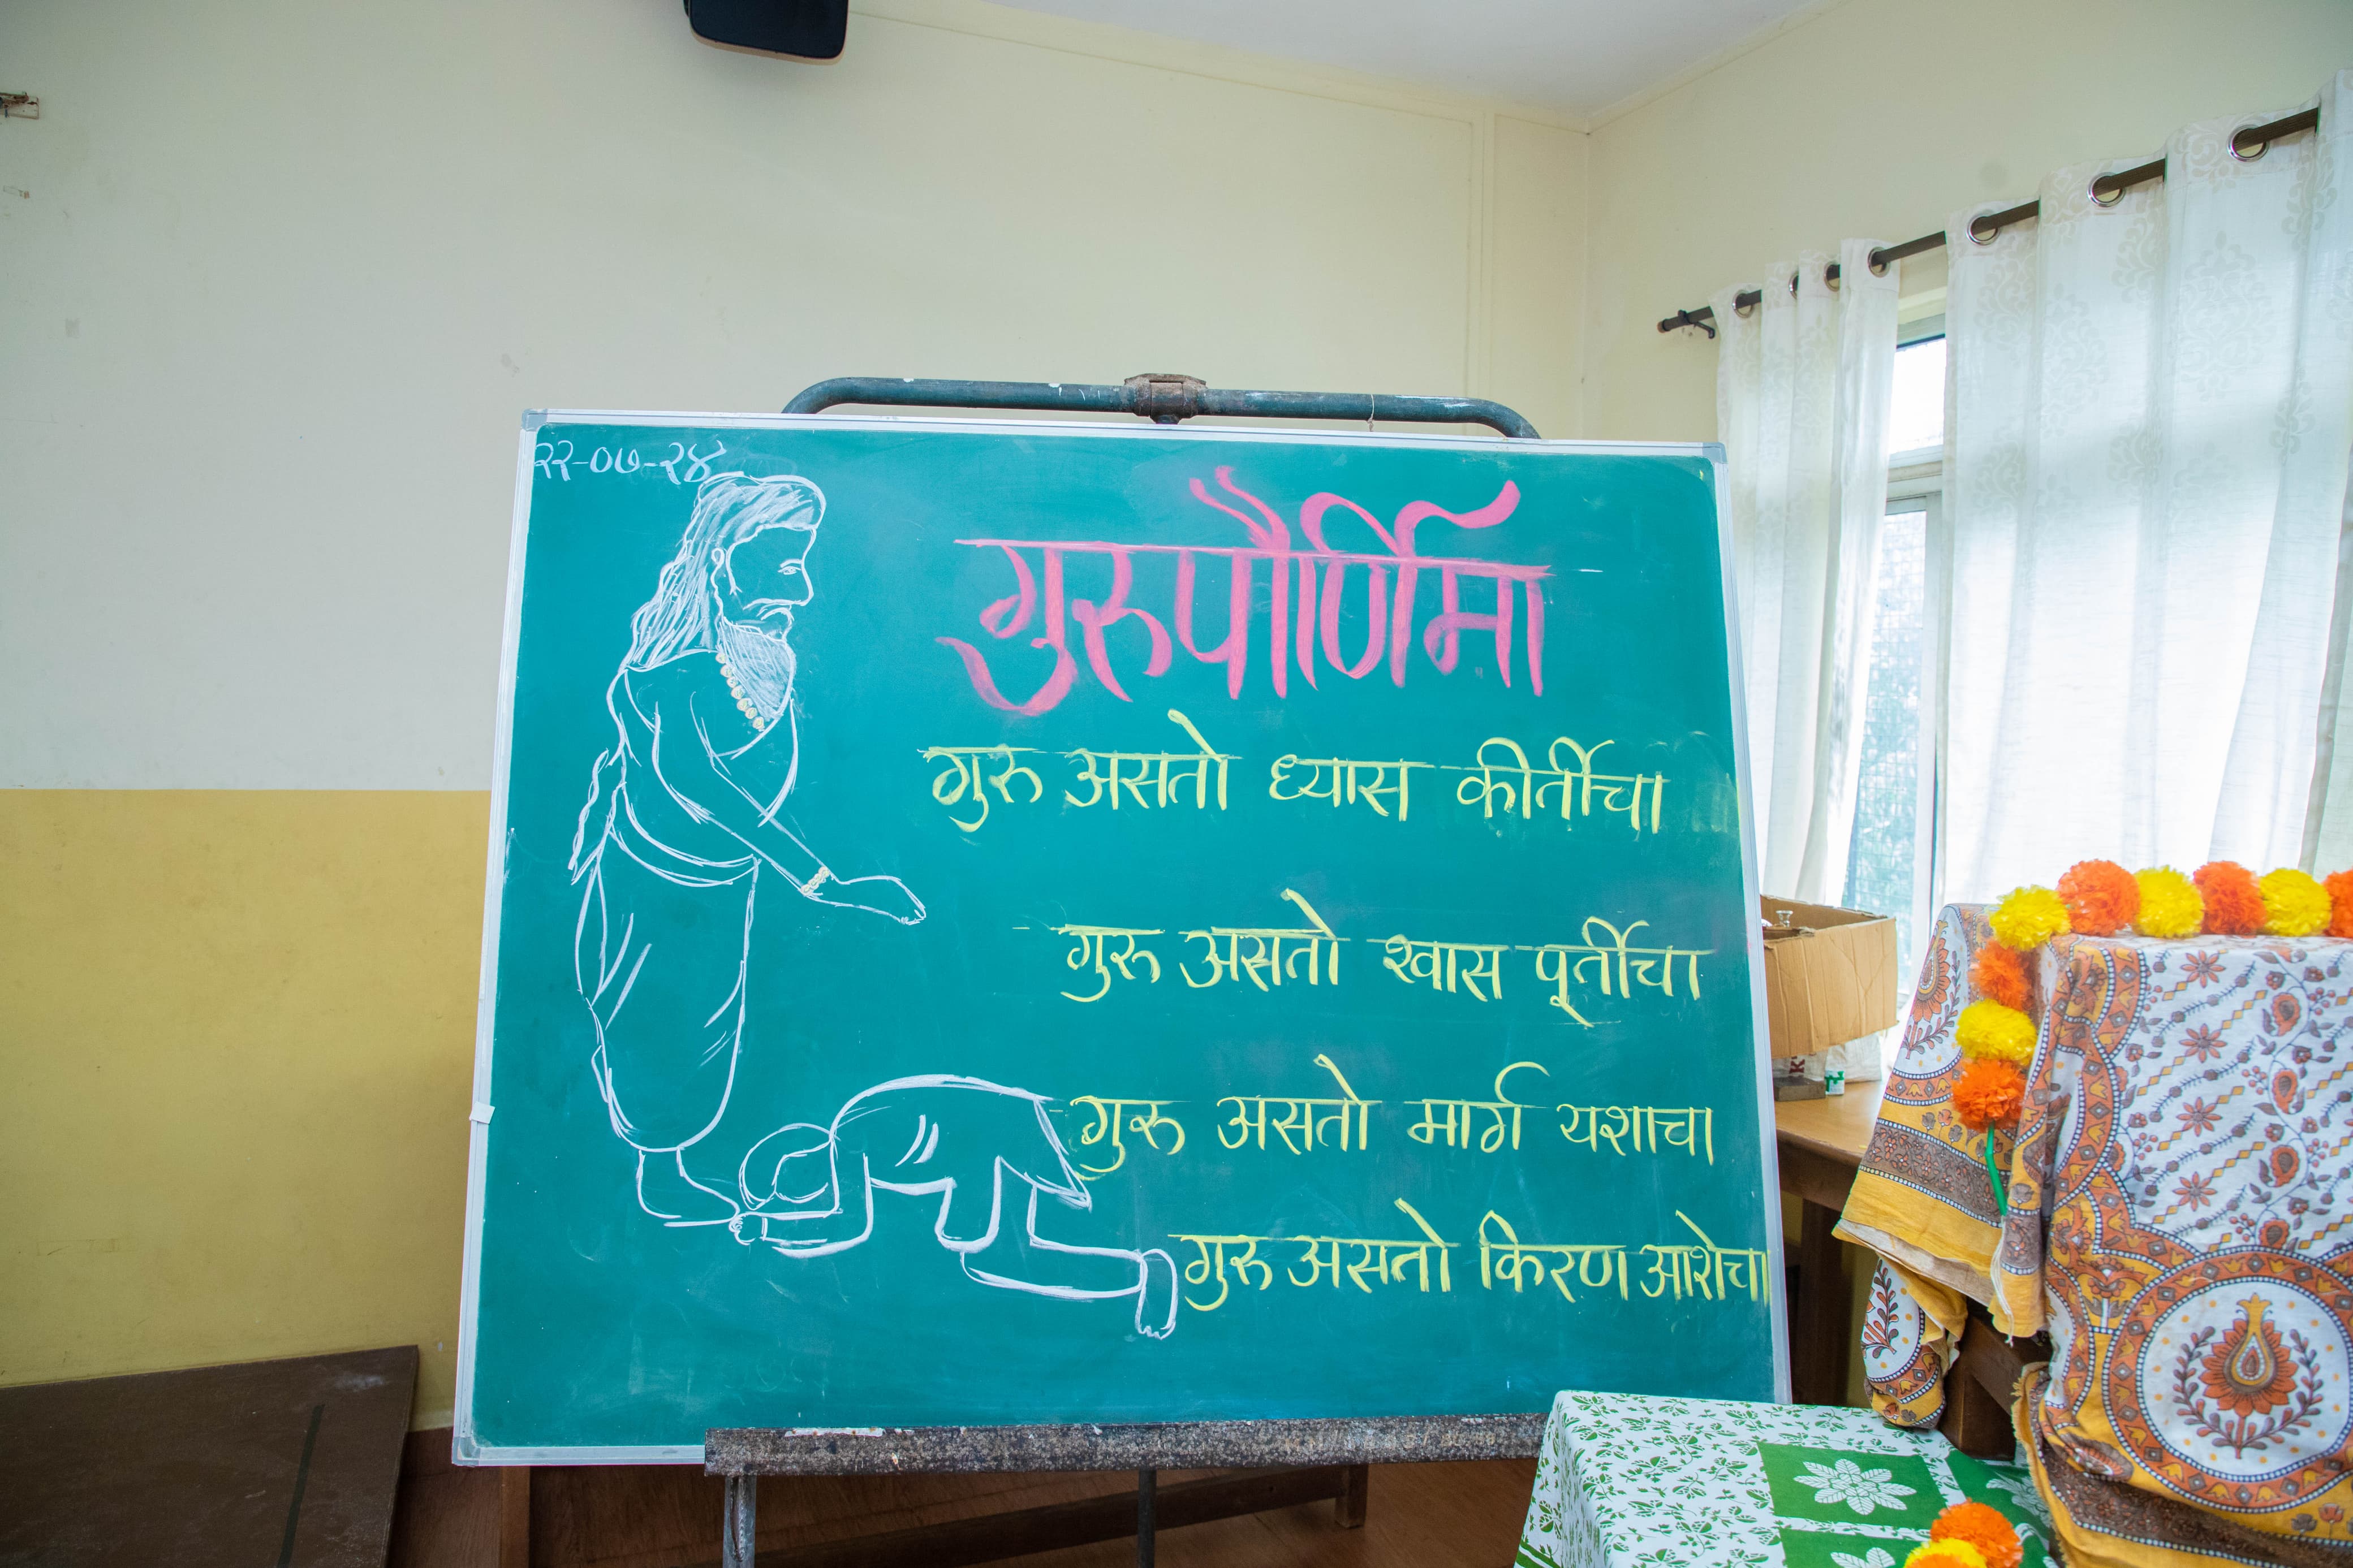 २२-०७-२४
गुरुपौर्णिमा
गुरु असतो ध्यास कीर्तीचा
गुरु असतो श्वास पूर्तीचा
गुरु असतो मार्ग यशाचा
गुरु असतो किरण आशेचा